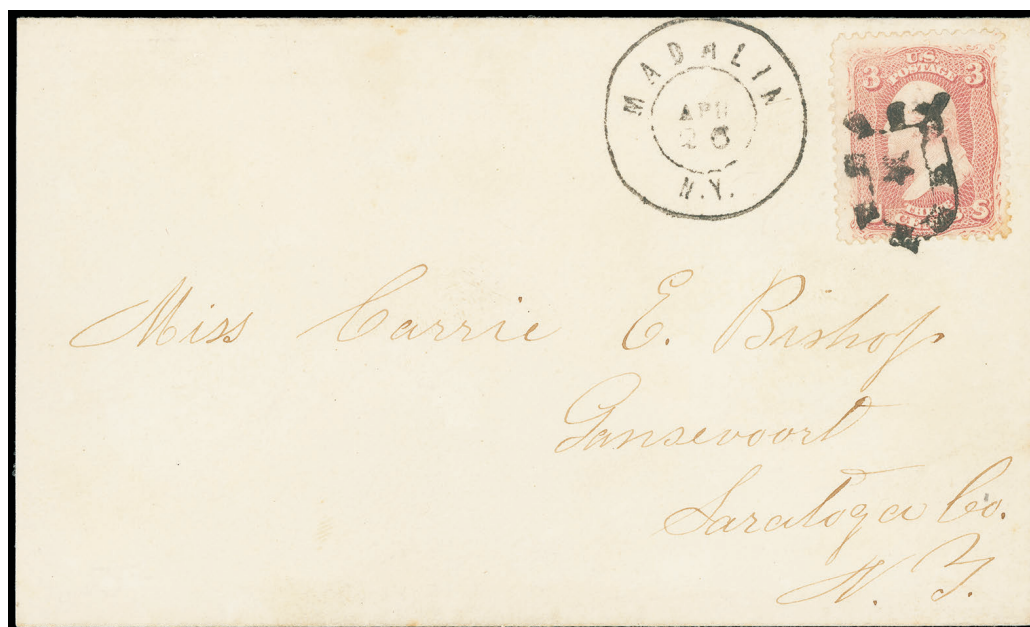 MADALIN
APR
26
N.Y.
U.S.
POSTAGE
3 3
THREE
CENTS
Miss Carrie E. Bishop
Gansevoort
Saratoga Co.
N. Y.